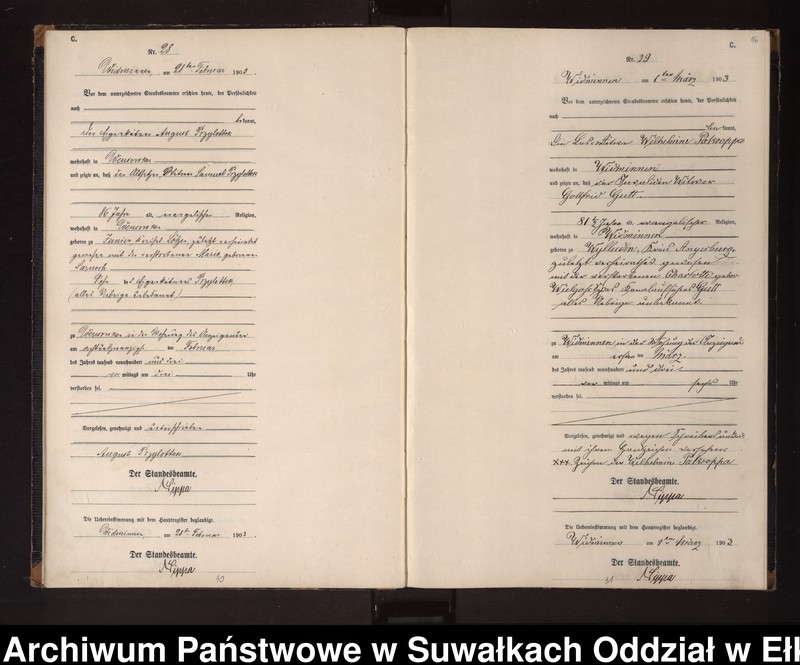 C.
Nr. 28
Widminnen am 28ten Februar 1903.
Vor dem unterzeichneten Standesbeamten erschien heute, der Persönlichkeit
nach
bekannt,
der Eigenkätner August Przyllotten
wohnhaft in
und zeigte an, daß der Altsitzer, Samuel Przyllotten
86 Jahre alt, evangelischer Religion,
wohnhaft in
geboren zu Kreises Lötzen, zuletzt verheirathet
gewesen mit der verstorbenen geborene
Sohn des Eigenkätners Przyllotten
(alles Uebrige unbekannt)
zu in der Wohnung des Anzeigenden
am achtundzwanzigsten Februar
des Jahres tausend neunhundert und drei
vor mittags um drei Uhr
verstorben sei.
Vorgelesen, genehmigt und unterschrieben
August Przyllotten
Der Standesbeamte.
Lippa
Die Uebereinstimmung mit dem Hauptregister beglaubigt.
Widminnen, am 28ten Februar 1903.
Der Standesbeamte.
Lippa
30
C.
Nr. 29
Widminnen am 1ten März 1903
Vor dem unterzeichneten Standesbeamten erschien heute, der Persönlichkeit
nach
bekannt,
die Wilhelmine Pakroppa
wohnhaft in Widminnen
und zeigte an, daß der Invaliden Witwer
Gottfried Gutt
81 ½ Jahre alt, evangelischer Religion,
wohnhaft in Widminnen
geboren zu Kreis Angerburg,
zuletzt verheirathet gewesen
mit der verstorbenen Charlotte gebor
Gutt
alles Uebrige unbekannt.
zu Widminnen in der Wohnung der Anzeigenden
am ersten März
des Jahres tausend neunhundert und drei
vor mittags um sechs Uhr
verstorben sei.
Vorgelesen, genehmigt und wegen
mit ihren Handzeichen versehen
+++ Zeichen der Wilhelmine Pakroppa
Der Standesbeamte.
Lippa
Die Uebereinstimmung mit dem Hauptregister beglaubigt.
Widminnen am 1ten März 1903
Der Standesbeamte.
Lippa
31
Archiwum Państwowe w Suwałkach Oddział w Eł